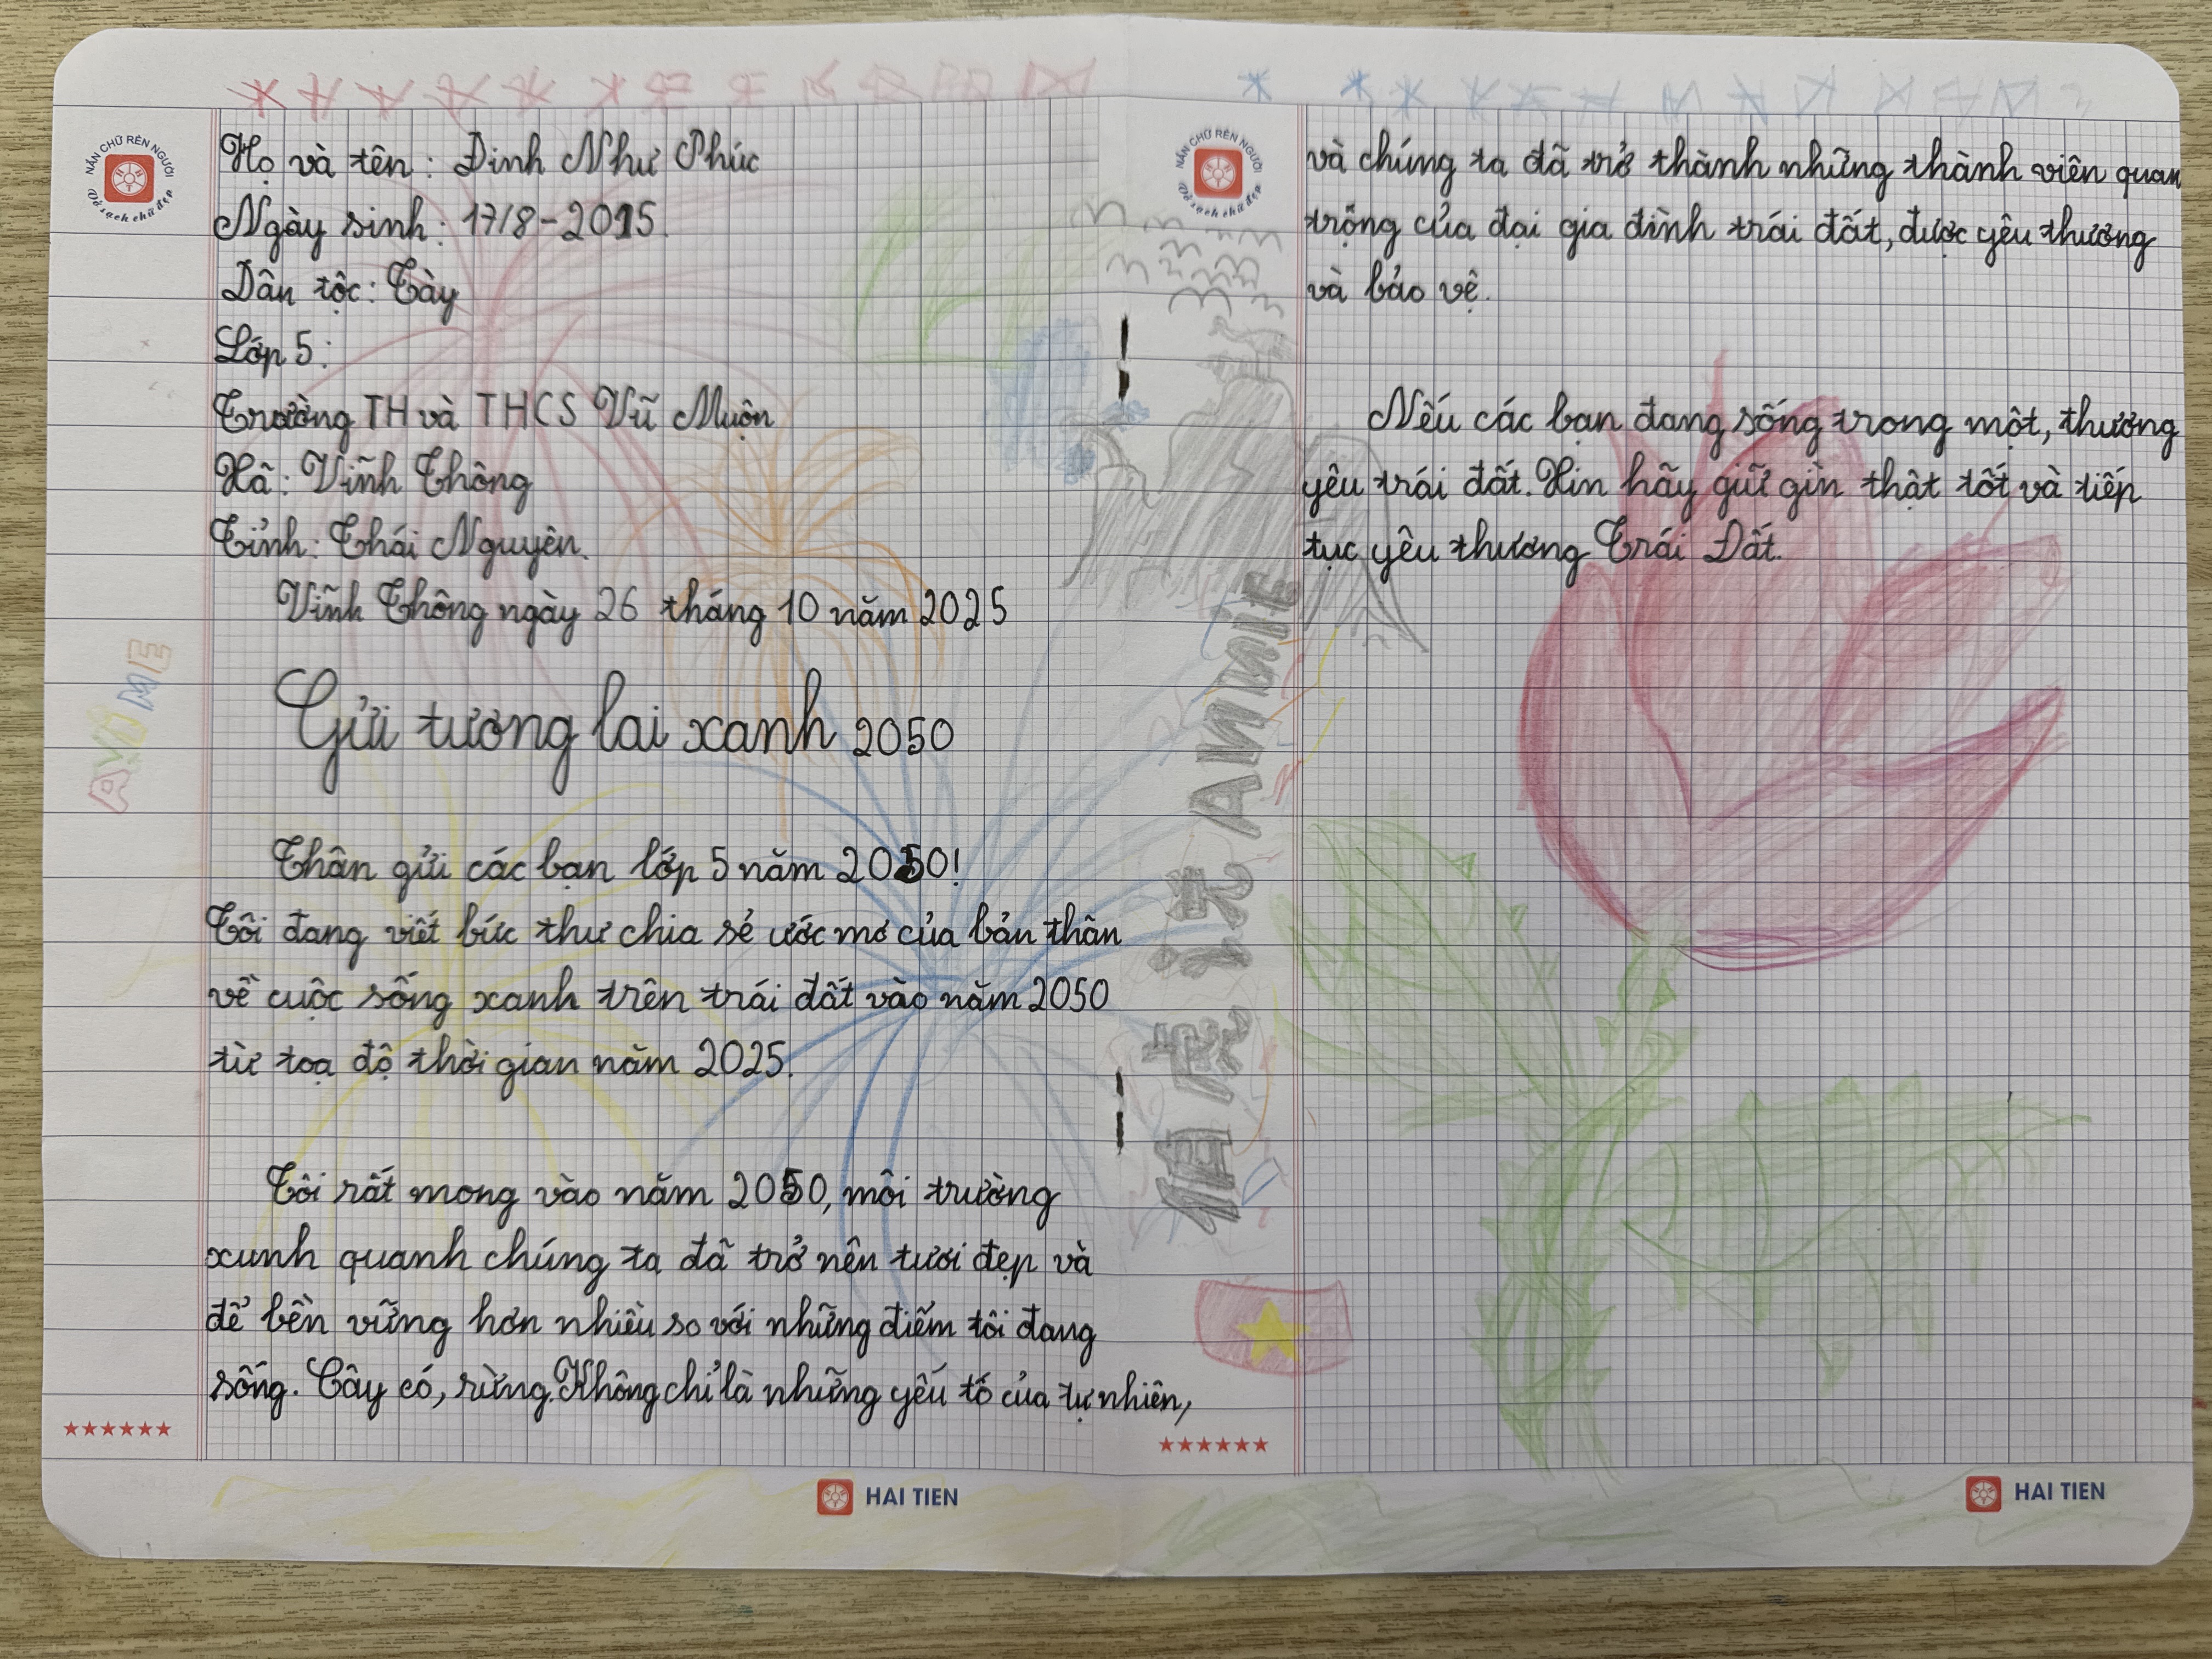 NẮN CHỮ RÈN NGƯỜI
Vở sạch chữ đẹp
Họ và tên: Đinh Như Phúc
Ngày sinh: 17/8-2015.
Dân tộc: Tày
Lớp 5:
Trường TH và THCS Vũ Muộn
Xã: Vĩnh Thông
Tỉnh: Thái Nguyên.
Vĩnh Thông ngày 26 tháng 10 năm 2025
Gửi tương lai xanh 2050
Thân gửi các bạn lớp 5 năm 2050!
Tôi đang viết bức thư chia sẻ ước mơ của bản thân
về cuộc sống xanh trên trái đất vào năm 2050
từ toạ độ thời gian năm 2025.
Tôi rất mong vào năm 2050, môi trường
xunh quanh chúng ta đã trở nên tươi đẹp và
để bền vững hơn nhiều so với những điểm tôi đang
sống. Cây có, rừng. Không chỉ là những yếu tố của tự nhiên,
HAI TIEN
NẮN CHỮ RÈN NGƯỜI
Vở sạch chữ đẹp
và chúng ta đã trở thành những thành viên quan
trộng của đại gia đình trái đất, được yêu thương
và bảo vệ.
Nếu các bạn đang sống trong một, thương
yêu trái đất. Xin hãy giữ gìn thật tốt và tiếp
tục yêu thương Trái Đất.
ANIME
HAI TIEN